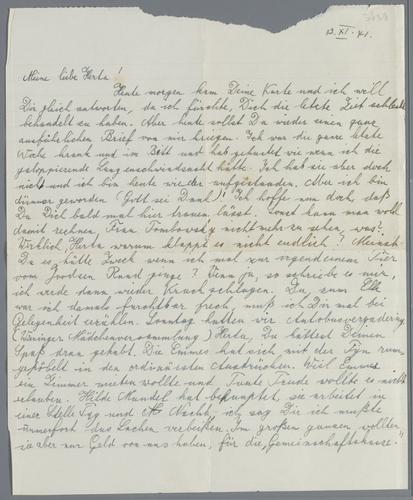 13. XI. 41.
Meine liebe Herta!
Heute morgen kam Deine Karte und ich will
Dir gleich antworten, da ich fürchte, Dich die letzte Zeit schlecht
behandelt zu haben. Aber heute sollst Du wieder einen ganz
ausführlichen Brief von mir kriegen. Ich war die ganze letzte
Woche krank und im Bett und hab gehustet wie wenn ich die
galoppierende Lungenschwindsucht hätte. Ich hab sie aber doch
nicht und ich bin heute wieder aufgestanden. Aber ich bin
dünner geworden (Gott sei Dank!) Ich hoffe nun doch, daß
Du Dich bald mal hier trauen lässt. Sonst kann man wohl
damit rechnen, Frau Tombowsky nicht mehr zu sehen, was?
Wirklich, Herta warum klappt es nicht endlich? Meinst
Du es hätte Zweck wenn ich mal zu irgendeinem Tier
vom Joodsen Raad ginge? Wenn ja, so schreibe es mir,
ich werde dann wieder Krach schlagen. Du, zum
war ich damals furchtbar frech, muß ich Dir mal bei
Gelegenheit erzählen. Sonntag hatten wir
Herta, Du hättest Deinen
Spaß dran gehabt. Die Emmes hat sich mit der rum-
gepöbelt in den ordinärsten Ausdrücken. Weil Emmes
ein Zimmer mieten wollte und Tante Trude wollte es nicht
erlauben. Hilde Mandel hat behauptet, sie arbeitet in
einer Stelle Tag und Nacht, ich sag Dir ich mußte
immerfort das Lachen verbeißen. Im großen ganzen wollten
sie aber nur Geld von uns haben, für die „Gemeinschaftskasse."